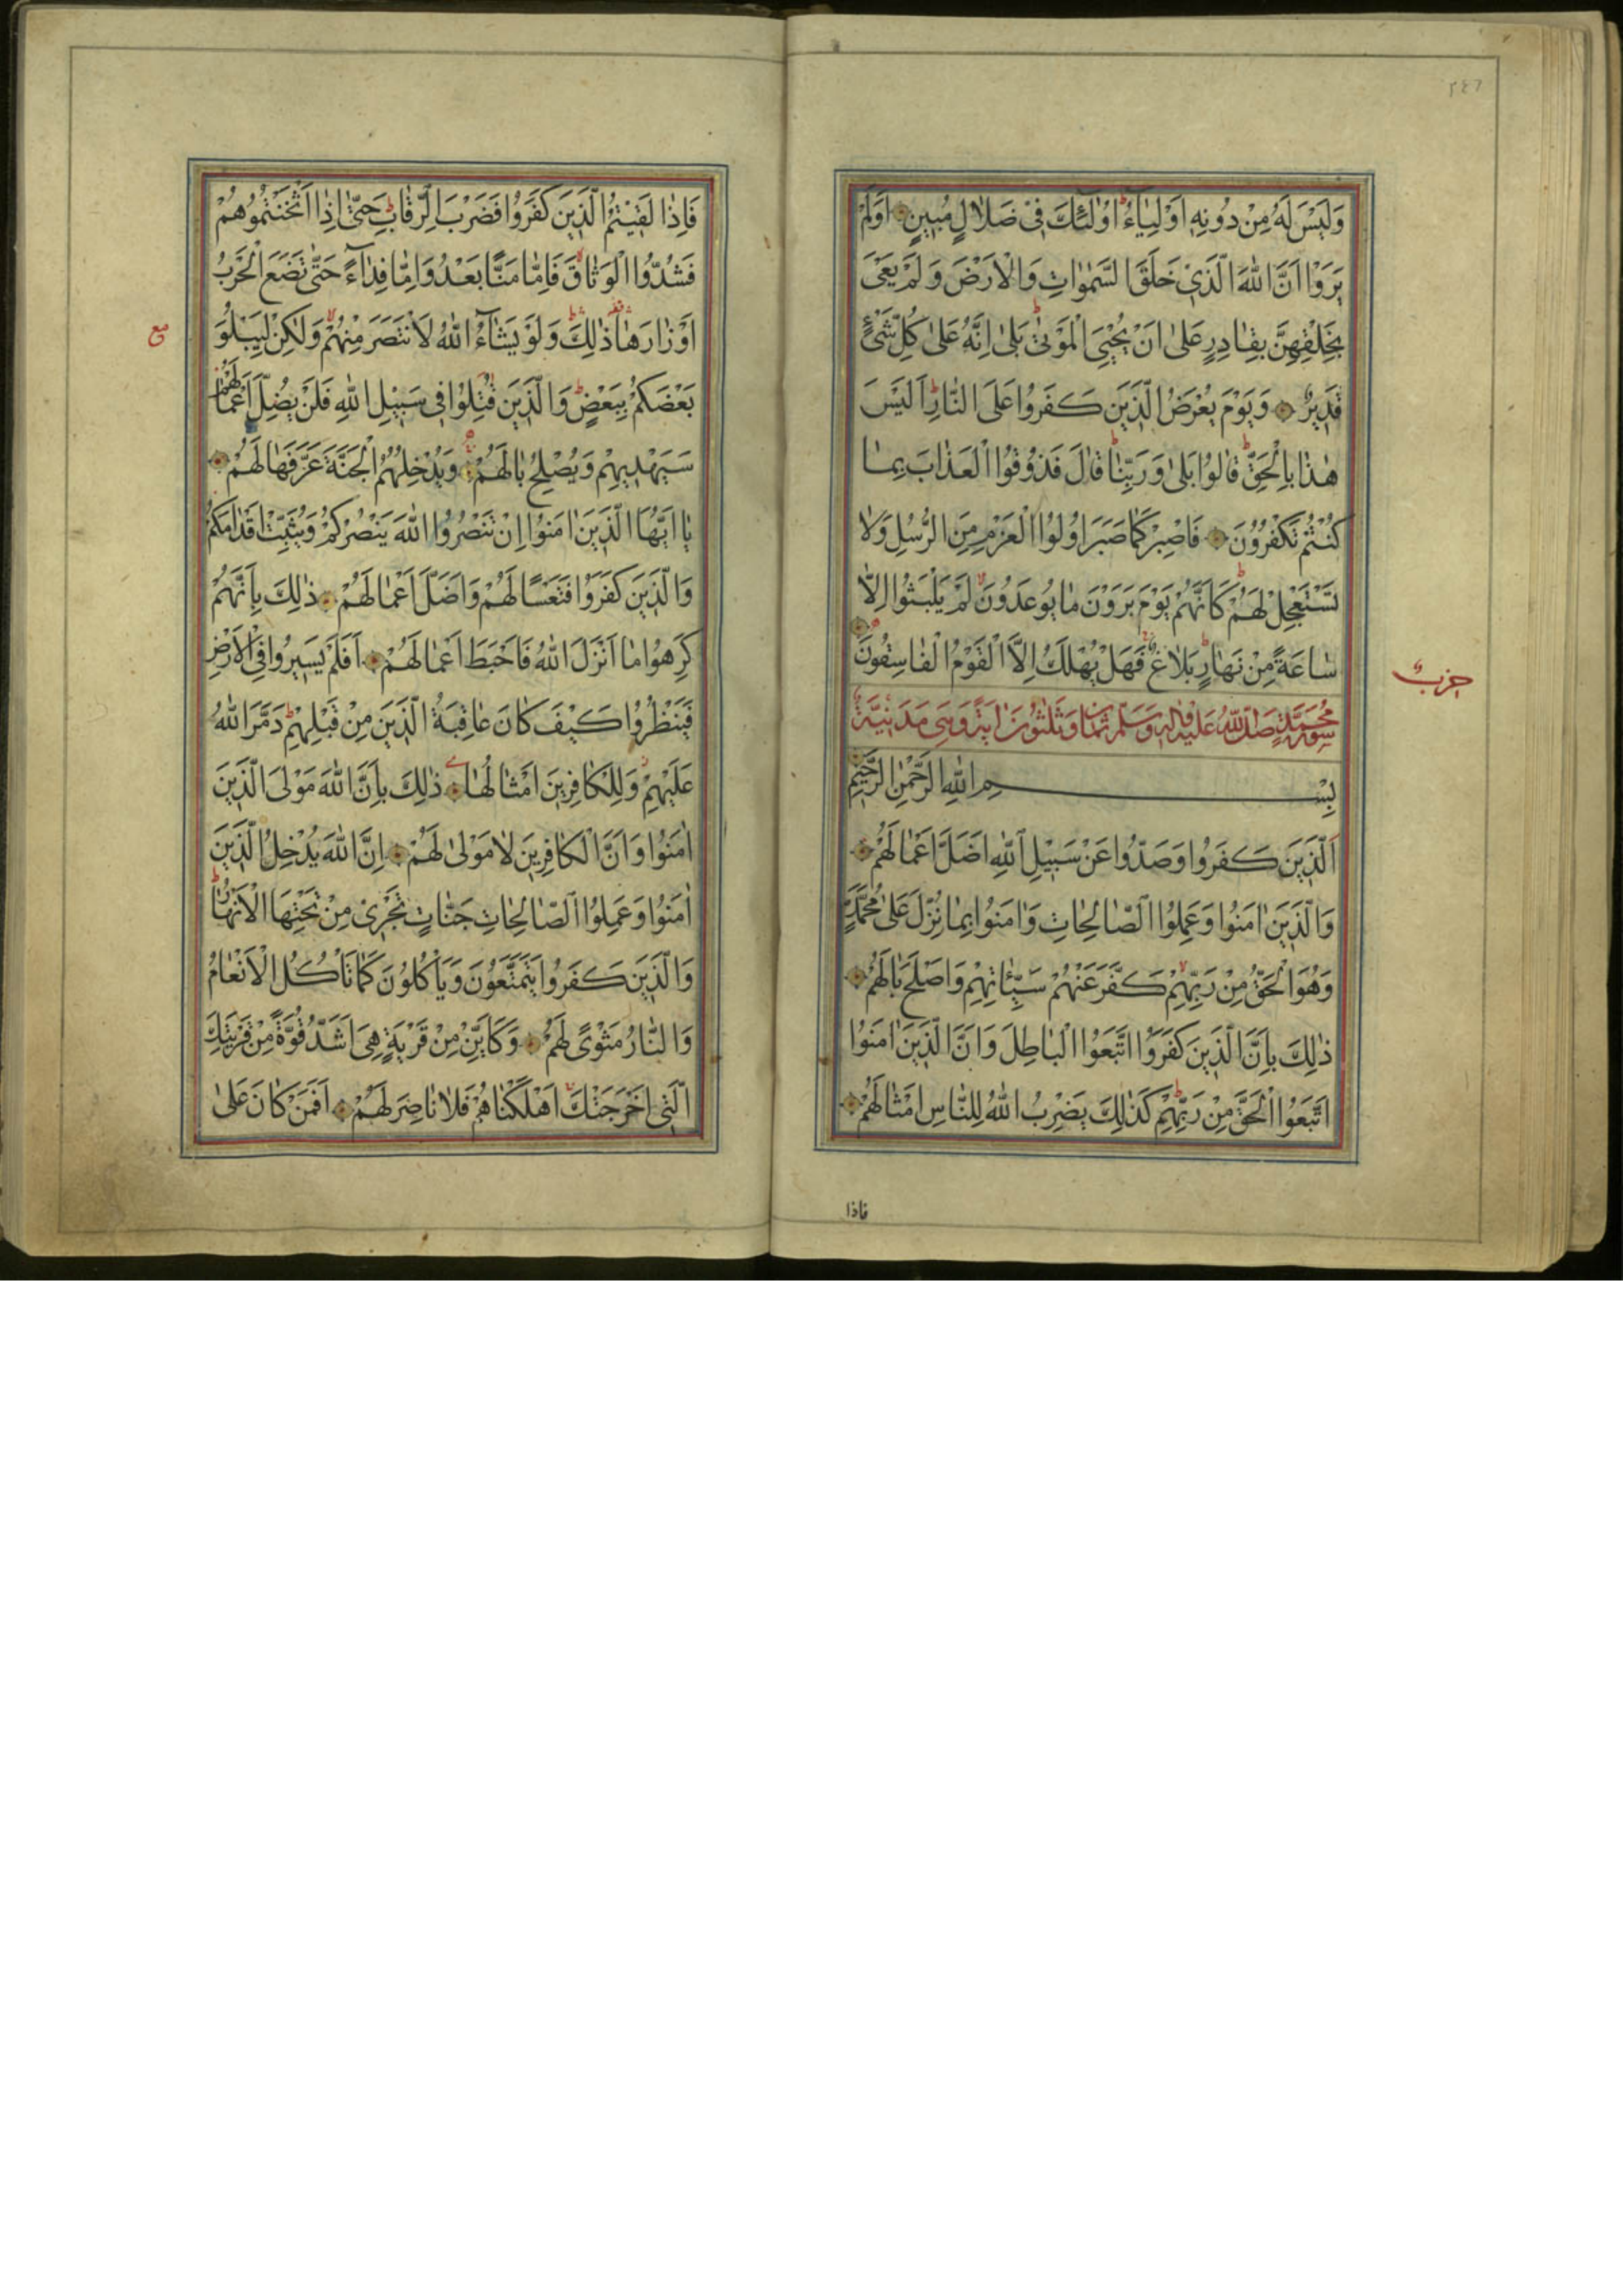 ٢٤٦
وَلَيْسَ لَهُ مِنْ دُونِهِ اَوْلِيَاءُ اُولٰئِكَ فِى ضَلَالٍ مُبِينٍ اَوَلَمْ
يَرَوْا اَنَّ اللّٰهَ الَّذِى خَلَقَ السَّمٰوَاتِ وَالْاَرْضَ وَلَمْ يَعْىَ
بِخَلْقِهِنَّ بِقَادِرٍ عَلٰى اَنْ يُحْيِىَ الْمَوْتٰى بَلٰى اِنَّهُ عَلٰى كُلِّ شَىْءٍ
قَدِيرٌ وَيَوْمَ يُعْرَضُ الَّذِينَ كَفَرُوا عَلَى النَّارِ اَلَيْسَ
هٰذَا بِالْحَقِّ قَالُوا بَلٰى وَرَبِّنَا قَالَ فَذُوقُوا الْعَذَابَ بِمَا
كُنْتُمْ تَكْفُرُونَ فَاصْبِرْ كَمَا صَبَرَ اُولُوا الْعَزْمِ مِنَ الرُّسُلِ وَلَا
تَسْتَعْجِلْ لَهُمْ كَاَنَّهُمْ يَوْمَ يَرَوْنَ مَا يُوعَدُونَ لَمْ يَلْبَثُوا اِلَّا
سَاعَةً مِنْ نَهَارٍ بَلَاغٌ فَهَلْ يُهْلَكُ اِلَّا الْقَوْمُ الْفَاسِقُونَ
حزب
سورة محمد صلى الله عليه وسلم ثمان وثلثون اية وهى مدينية
بِسْمِ اللّٰهِ الرَّحْمٰنِ الرَّحِيمِ
اَلَّذِينَ كَفَرُوا وَصَدُّوا عَنْ سَبِيلِ اللّٰهِ اَضَلَّ اَعْمَالَهُمْ
وَالَّذِينَ اٰمَنُوا وَعَمِلُوا الصَّالِحَاتِ وَاٰمَنُوا بِمَا نُزِّلَ عَلٰى مُحَمَّدٍ
وَهُوَ الْحَقُّ مِنْ رَبِّهِمْ كَفَّرَ عَنْهُمْ سَيِّئَاتِهِمْ وَاَصْلَحَ بَالَهُمْ
ذٰلِكَ بِاَنَّ الَّذِينَ كَفَرُوا اتَّبَعُوا الْبَاطِلَ وَاَنَّ الَّذِينَ اٰمَنُوا
اتَّبَعُوا الْحَقَّ مِنْ رَبِّهِمْ كَذٰلِكَ يَضْرِبُ اللّٰهُ لِلنَّاسِ اَمْثَالَهُمْ
فاذا
فَاِذَا لَقِيتُمُ الَّذِينَ كَفَرُوا فَضَرْبَ الرِّقَابِ حَتّٰى اِذَا اَثْخَنْتُمُوهُمْ
فَشُدُّوا الْوَثَاقَ فَاِمَّا مَنًّا بَعْدُ وَاِمَّا فِدَاءً حَتّٰى تَضَعَ الْحَرْبُ
اَوْزَارَهَا ذٰلِكَ وَلَوْ يَشَاءُ اللّٰهُ لَانْتَصَرَ مِنْهُمْ وَلٰكِنْ لِيَبْلُوَ
بَعْضَكُمْ بِبَعْضٍ وَالَّذِينَ قُتِلُوا فِى سَبِيلِ اللّٰهِ فَلَنْ يُضِلَّ اَعْمَالَهُمْ
سَيَهْدِيهِمْ وَيُصْلِحُ بَالَهُمْ وَيُدْخِلُهُمُ الْجَنَّةَ عَرَّفَهَا لَهُمْ
يَا اَيُّهَا الَّذِينَ اٰمَنُوا اِنْ تَنْصُرُوا اللّٰهَ يَنْصُرْكُمْ وَيُثَبِّتْ اَقْدَامَكُمْ
وَالَّذِينَ كَفَرُوا فَتَعْسًا لَهُمْ وَاَضَلَّ اَعْمَالَهُمْ ذٰلِكَ بِاَنَّهُمْ
كَرِهُوا مَا اَنْزَلَ اللّٰهُ فَاَحْبَطَ اَعْمَالَهُمْ اَفَلَمْ يَسِيرُوا فِى الْاَرْضِ
فَيَنْظُرُوا كَيْفَ كَانَ عَاقِبَةُ الَّذِينَ مِنْ قَبْلِهِمْ دَمَّرَ اللّٰهُ
عَلَيْهِمْ وَلِلْكَافِرِينَ اَمْثَالُهَا ذٰلِكَ بِاَنَّ اللّٰهَ مَوْلَى الَّذِينَ
اٰمَنُوا وَاَنَّ الْكَافِرِينَ لَا مَوْلٰى لَهُمْ اِنَّ اللّٰهَ يُدْخِلُ الَّذِينَ
اٰمَنُوا وَعَمِلُوا الصَّالِحَاتِ جَنَّاتٍ تَجْرِى مِنْ تَحْتِهَا الْاَنْهَارُ
وَالَّذِينَ كَفَرُوا يَتَمَتَّعُونَ وَيَاْكُلُونَ كَمَا تَاْكُلُ الْاَنْعَامُ
وَالنَّارُ مَثْوًى لَهُمْ وَكَاَيِّنْ مِنْ قَرْيَةٍ هِىَ اَشَدُّ قُوَّةً مِنْ قَرْيَتِكَ
الَّتِى اَخْرَجَتْكَ اَهْلَكْنَاهُمْ فَلَا نَاصِرَ لَهُمْ اَفَمَنْ كَانَ عَلٰى